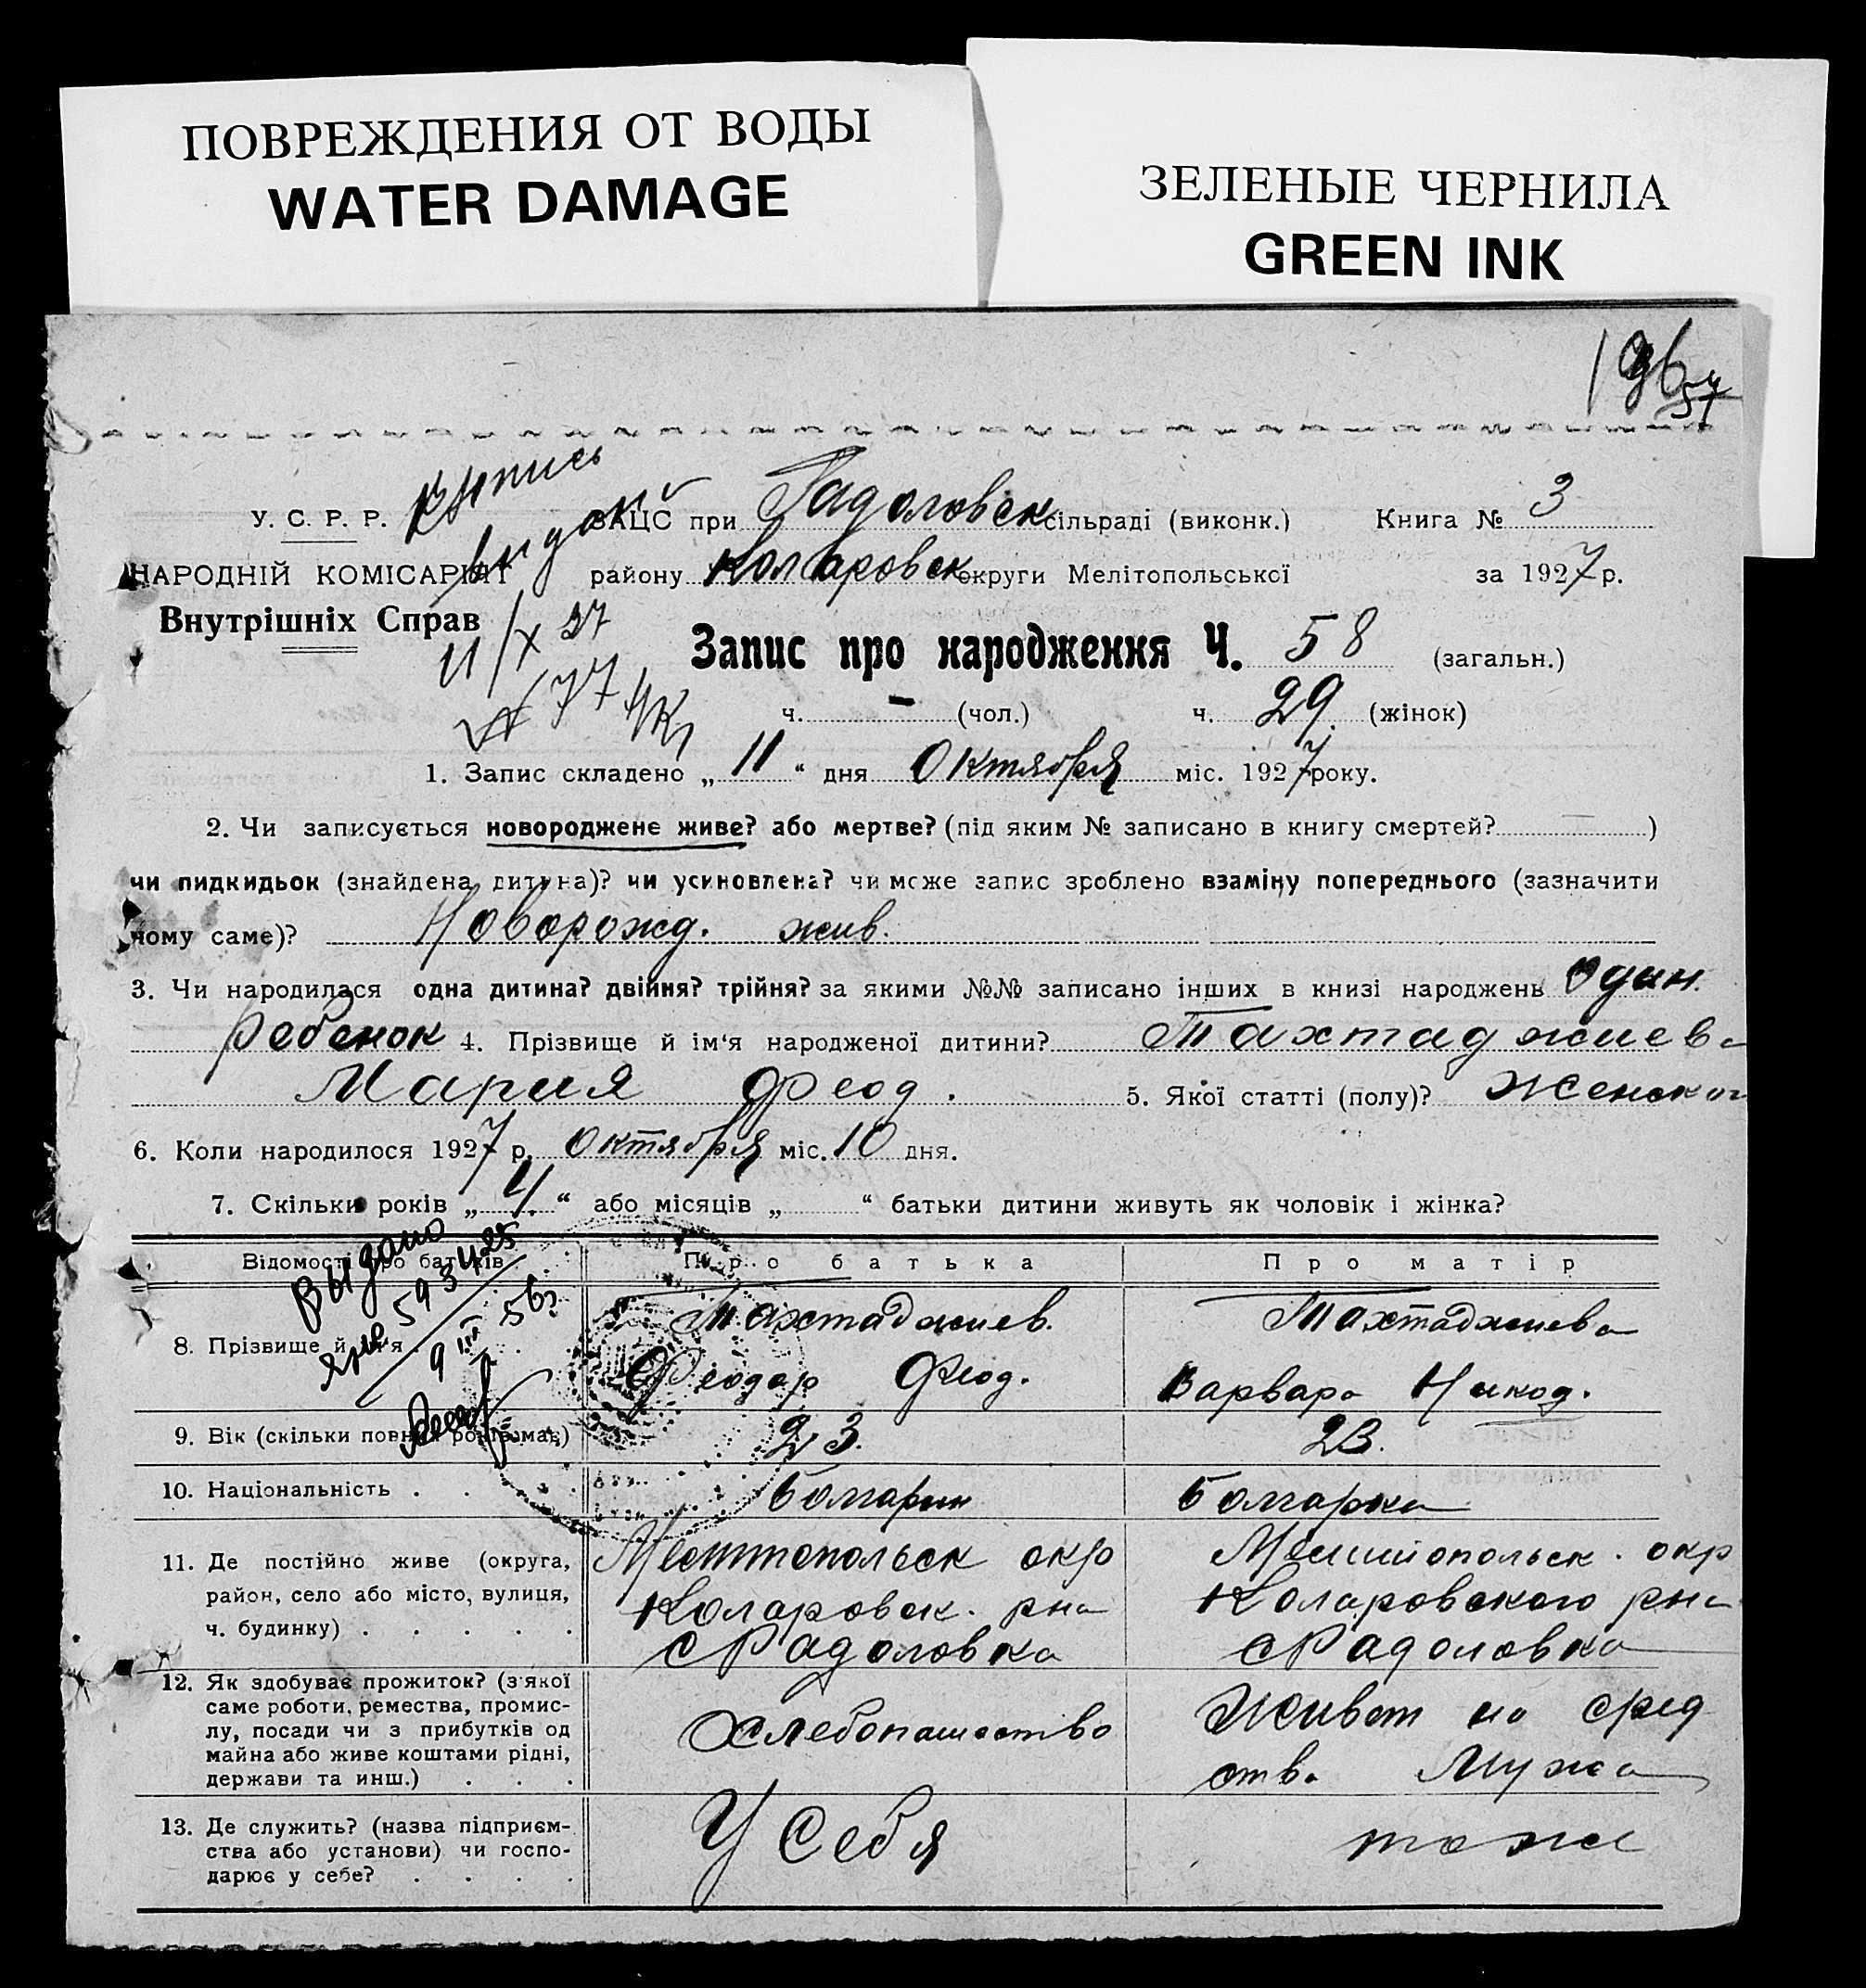 ПОВРЕЖДЕНИЯ ОТ ВОДЫ
WATER DAMAGE
ЗЕЛЕНЫЕ ЧЕРНИЛА
GREEN INK
У. С. Р. Р. ЗАЦС при Радоловск сільраді (виконк.) Книга № 3
НАРОДНІЙ КОМІСАРІЯТ району Коларовск округи Мелітопольської за 1927 р.
Внутрішніх Справ
Выпись
выдан
11/X 27
№ 77
Запис про народження Ч. 58 (загальн.)
ч. – (чол.) ч. 29 (жінок)
1. Запис складено „ 11 “ дня Октября міс. 1927 року.
2. Чи записується новороджене живе? або мертве? (під яким № записано в книгу смертей? — )
чи пидкидьок (знайдена дитина)? чи усиновлена? чи може запис зроблено взаміну попереднього (зазначити
чому саме)? Новорожд. жив.
3. Чи народилася одна дитина? двійня? трійня? за якими №№ записано інших в книзі народжень Один
ребенок 4. Прізвище й ім‘я народженої дитини? Тахтаджиева
Мария Феод. 5. Якої статті (полу)? Женског
6. Коли народилося 1927 р. Октября міс. 10 дня.
7. Скільки років „ 4 “ або місяців „ “ батьки дитини живуть як чоловік і жінка?
Відомості про батьків Про батька Про матір
Выдано
593425
9 III 56г
8. Прізвище й ім‘я Тахтаджиев. Тахтаджиева
Феодар Феод. Варвара Никод.
9. Вік (скільки повних років має) 23. 23.
10. Національність . . Болгарин Болгарка
11. Де постійно живе (округа, Мелитопольск окр Мелитопольск. окр
район, село або місто, вулиця, Коларовск. рна Коларовского рна
ч. будинку) . . . . . с Радоловка с Радоловка
12. Як здобуває прожиток? (з‘якої
саме роботи, ремества, промис-
лу, посади чи з прибутків од Хлебопашество Живет на сред
майна або живе коштами рідні,
держави та инш.) . . . ства Мужа
13. Де служить? (назва підприєм-
ства або установи) чи госпо- У Себя тоже
дарює у себе? . . . .